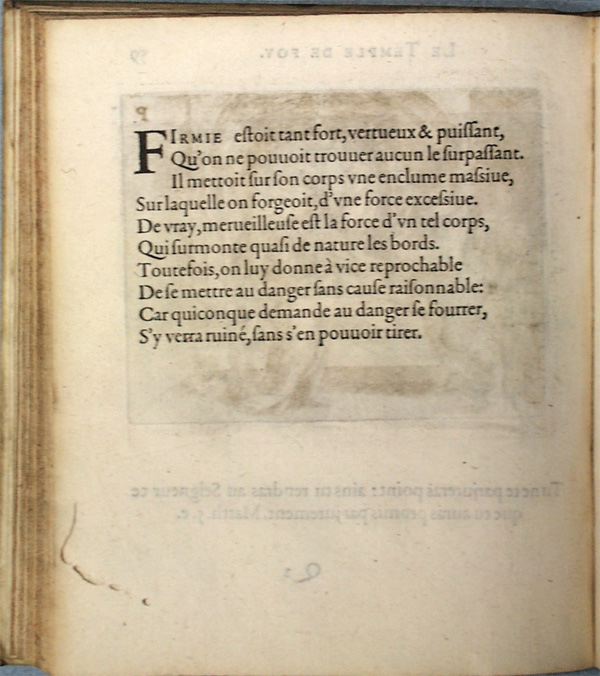 FIRMIE eſtoit tant fort, vertueux & puiſſant,
Qu'on ne pouuoit trouuer aucun le ſurpaſſant.
Il mettoit ſur ſon corps vne enclume maſsiue,
Sur laquelle on forgeoit, d'vne force exceſsiue.
De vray, merueilleuſe eſt la force d'vn tel corps,
Qui ſurmonte quaſi de nature les bords.
Toutefois, on luy donne à vice reprochable
De ſe mettre au danger ſans cauſe raiſonnable:
Car quiconque demande au danger ſe fourrer,
S'y verra ruiné, ſans s'en pouuoir tirer.